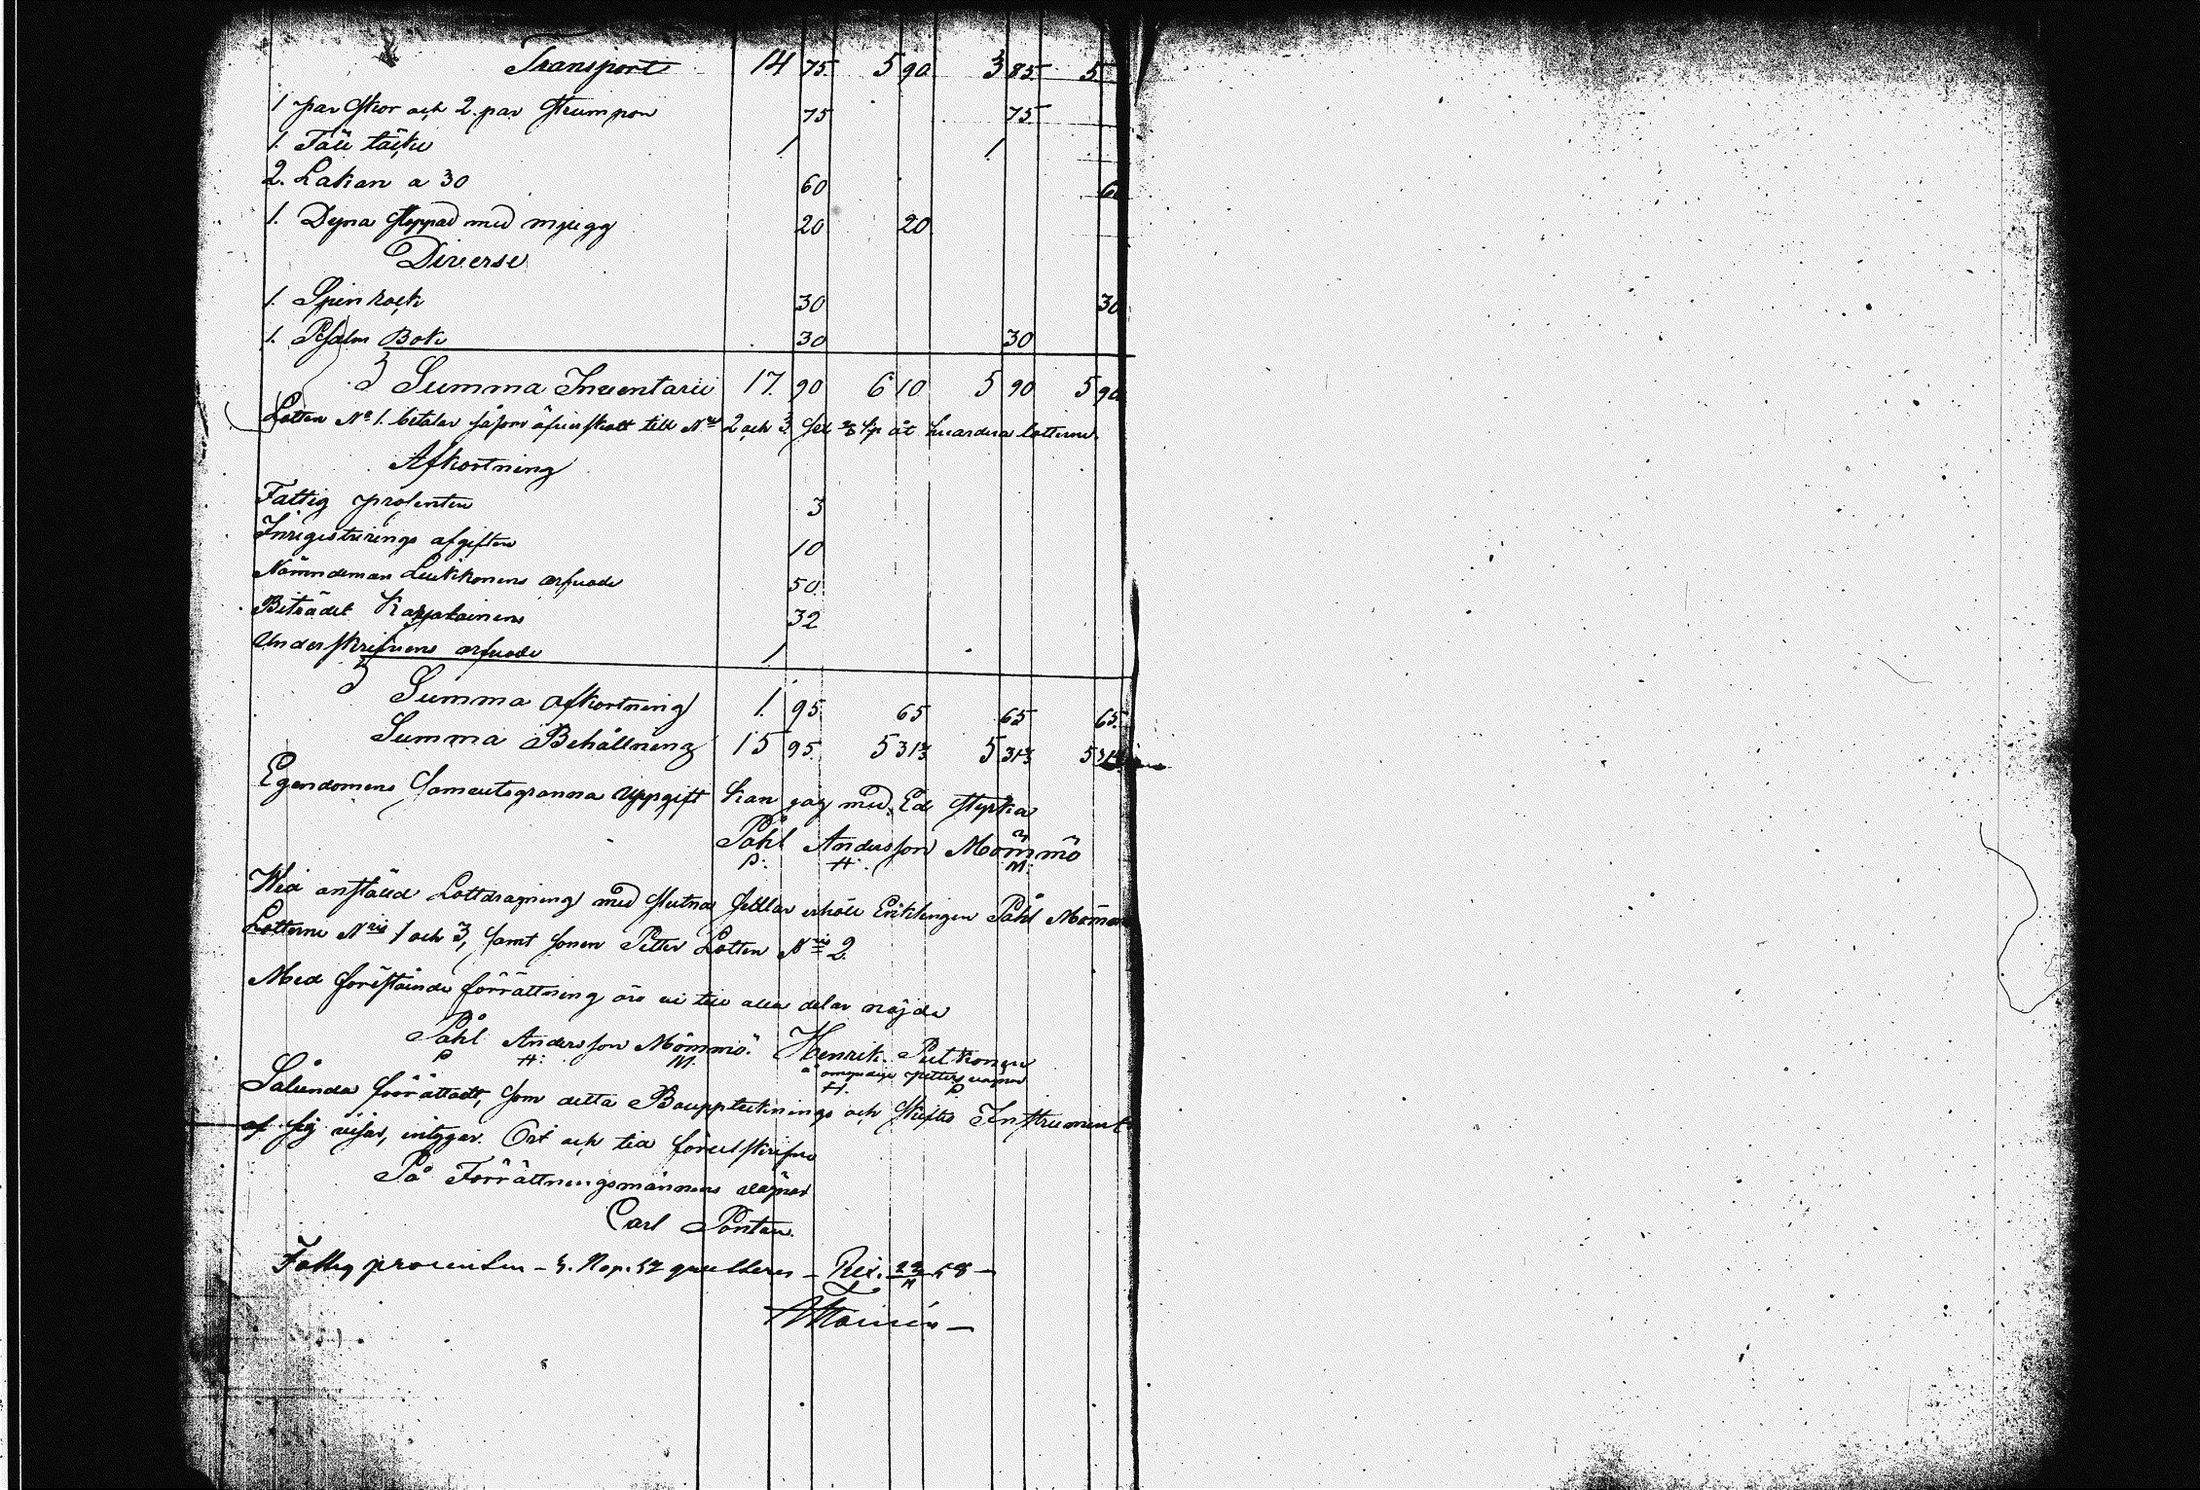 Transport 14 75 5 90 3 85 5
1 par skor och 2. par strumpor 75 75
1. Fäll täcke 1 1
2. Lakan a 30 60 60
1. Dyna stoppad med mjugg 20 20
Diverse
1. Spinrock 30 30
1. Psalm Bok 30 30
Summa Inventarii 17. 90 6 10 5 90 5 90
Lotten No 1. betalar såsom öfverskott till No 2 och 3 åt hvardera lotterne.
Afkortning
Fattig prosenten 3
Inregistrerings afgiften 10
Nämndeman Leikkonens arfvode 50
Biträdet Karjalainens 32
Underskrifvens arfvode 1
Summa afkortning 1. 95 65 65 65
Summa Behållning 15 95. 5 31⅔ 5 31⅔ 5 31⅔
Egendomens samvetsgranna uppgift kan jag med Ed styrka
Påhl Andersson Mömmö
P: H: M:
Wid anstäld Lottdragning med slutna sedlar erhöll Enklingen Påhl Mömmö
Lotterne Nris 1 och 3, samt sonen Petter Lotten Nris 2.
Med föreståinde förrättning äro vi till alla delar nöjde
Påhl Andersson Mömmö. Henrik Putkonen
P H: M. å omyndige Petters vägnar
H. P
Sålunda förrättadt, som detta Bouppteknings och skiftes Instrument
af sig visar, intygar. Ort och tid förutskrifne
På Förrättningsmännens vägnar
Carl Pontan.
Fattig procenten – 3. Kop. 57 qvitteras – 58 –